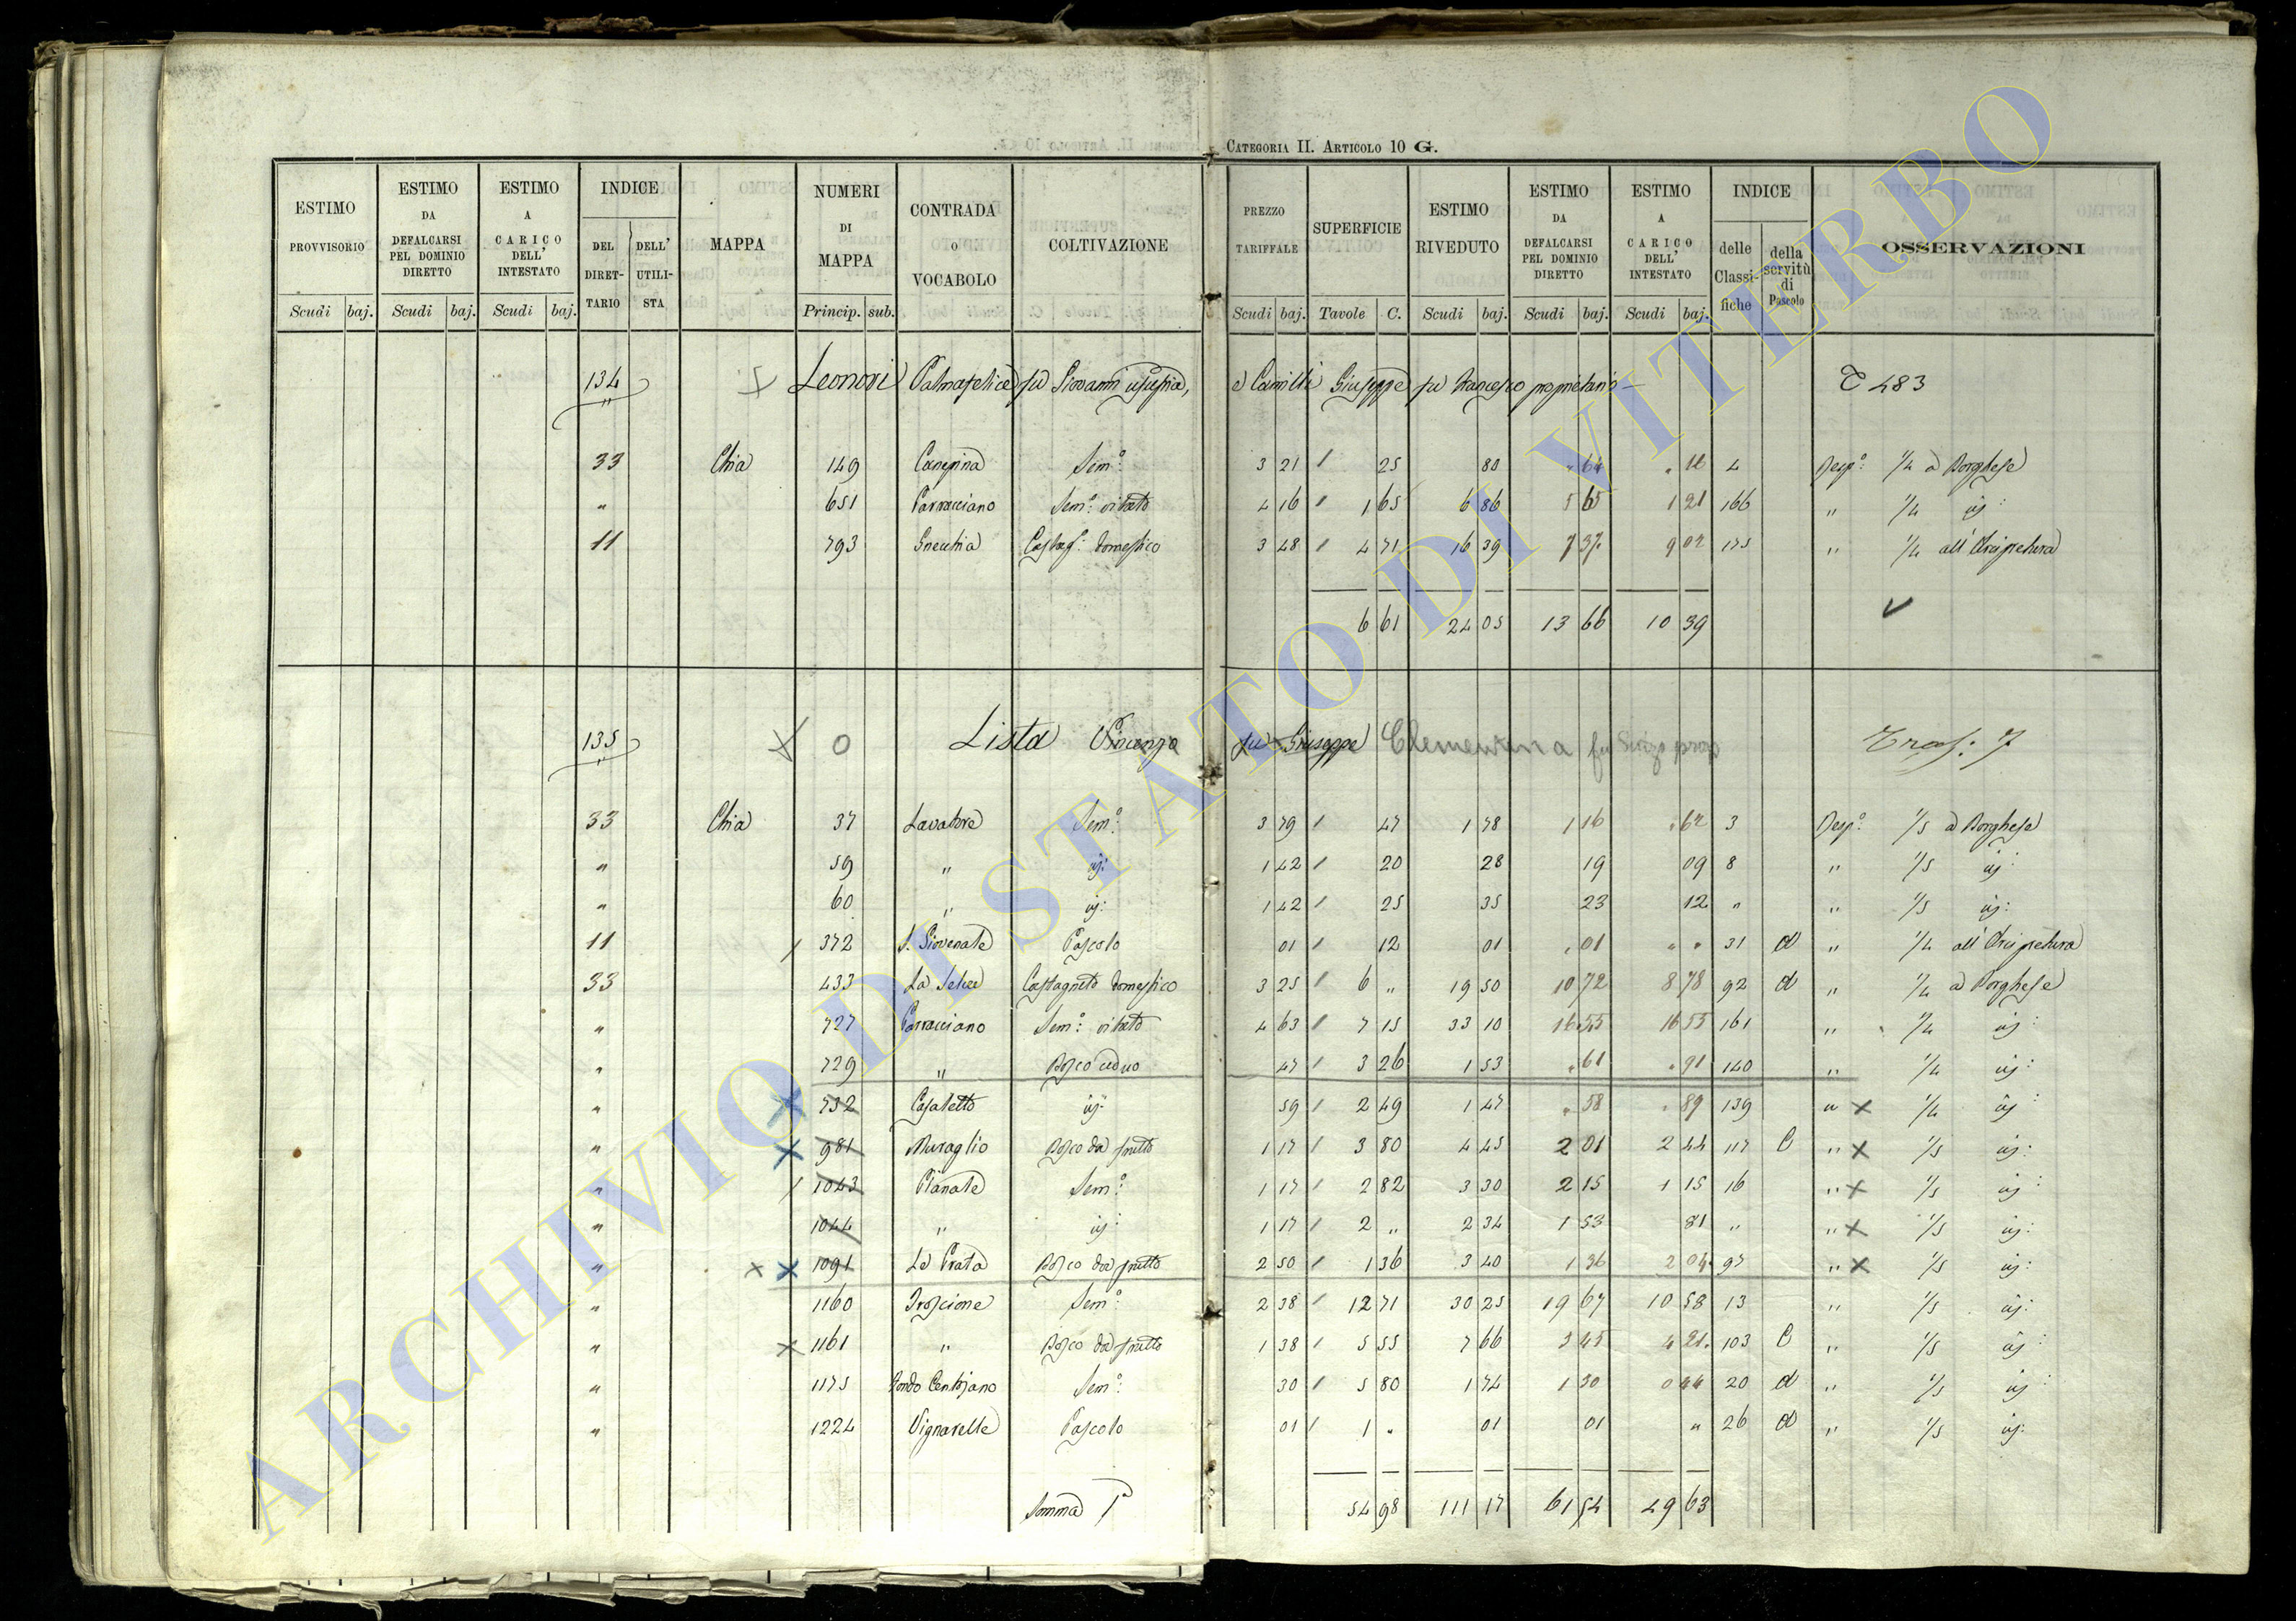 CATEGORIA II. ARTICOLO 10 G.
ESTIMO PROVVISORIO Scudi baj.
ESTIMO DA DEFALCARSI PEL DOMINIO DIRETTO Scudi baj.
ESTIMO A CARICO DELL' INTESTATO Scudi baj.
INDICE DEL DIRETTARIO DELL' UTILISTA
MAPPA
NUMERI DI MAPPA Princip. sub.
CONTRADA O VOCABOLO
COLTIVAZIONE
PREZZO TARIFFALE Scudi baj.
SUPERFICIE Tavole C.
ESTIMO RIVEDUTO Scudi baj.
ESTIMO DA DEFALCARSI PEL DOMINIO DIRETTO Scudi baj.
ESTIMO A CARICO DELL' INTESTATO Scudi baj.
INDICE delle Classifiche della servitù di Pascolo
OSSERVAZIONI
134 Leonori Palmafelice fu Giovanni e Camilli Giuseppe fu Francesco 483
33 Chia 149 Sem: 3 21 25 80 64 16 4 Resp: 1/4 a Borghese
" 651 Sem: vitato 4 16 1 65 6 86 5 65 1 21 166 " 1/4
11 793 Castag: domestico 3 48 4 71 16 39 7 37 9 02 175 " 1/4 all' Arcipretura
6 61 24 05 13 66 10 39
135 0 Lista Vincenzo fu Giuseppe Clementina
33 Chia 37 Lavatore Sem: 3 79 47 1 78 1 16 62 3 Resp: 1/5 a Borghese
" 59 " 1 42 20 28 19 09 8 " 1/5
" 60 " 1 42 25 35 23 12 " " 1/5
11 372 S. Giovenale Pascolo 01 12 01 01 " " 31 d " 1/4 all' Arcipretura
33 433 La Selva Castagneto domestico 3 25 6 " 19 50 10 72 8 78 92 d " 1/4 a Borghese
" 727 Sem: vitato 4 63 7 15 33 10 16 55 16 55 161 " 1/4
" 729 " Bosco ceduo 47 3 26 1 53 61 91 140 " 1/4
" 732 Casaletto 59 2 49 1 47 58 89 139 " 1/4
" 981 Muraglio Bosco da frutto 1 17 3 80 4 45 2 01 2 44 117 C " 1/5
" 1043 Pianale Sem: 1 17 2 82 3 30 2 15 1 15 16 " 1/5
" 1044 " 1 17 2 " 2 34 1 53 81 " " 1/5
" 1091 Le Prata Bosco da frutto 2 50 1 36 3 40 1 36 2 04 97 " 1/5
" 1160 Troscione Sem: 2 38 12 71 30 25 19 67 10 58 13 " 1/5
" 1161 " Bosco da frutto 1 38 5 55 7 66 3 45 4 21 103 C " 1/5
" 1175 Fondo Sem: 30 5 80 1 74 1 30 0 44 20 d " 1/5
" 1224 Vignarelle Pascolo 01 1 " 01 01 " 26 d " 1/5
Somma 54 98 111 17 61 54 49 63
ARCHIVIO DI STATO DI VITERBO